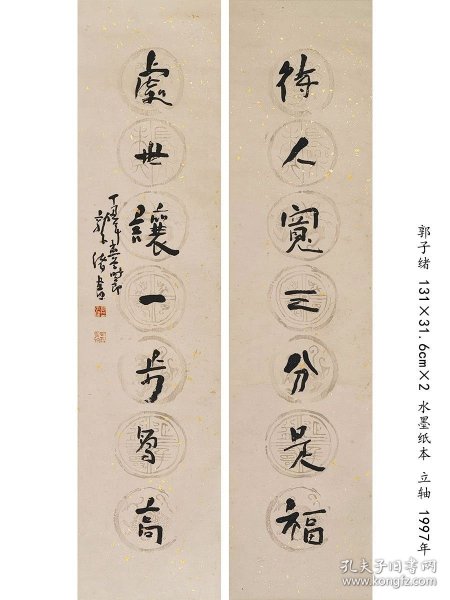 待人寬三分是福
處世讓一步為高
丁丑年
郭子緒書
郭子绪 131×31.6cm×2 水墨纸本 立轴 1997年
孔夫子旧书网
kongfz.com